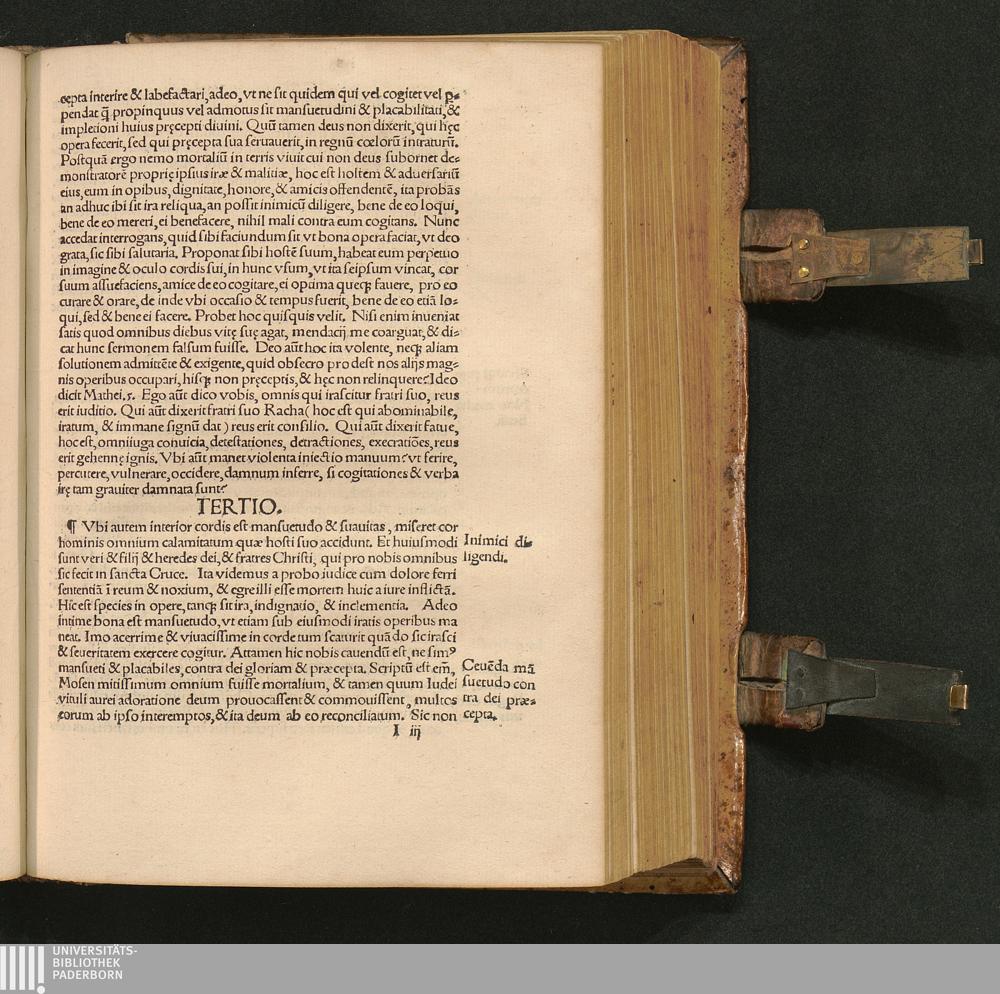 cepta interire & labefactari, adeo, vt ne sit quidem qui vel cogitet vel ꝑ-
pendat ꝙ̃ propinquus vel admotus sit mansuetudini & placabilitati, &
impletioni huius pręcepti diuini. Quũ tamen deus non dixerit, qui hęc
opera fecerit, sed qui pręcepta sua seruauerit, in regnũ cœlorũ intraturũ.
Postquã ergo nemo mortaliũ in terris viuit cui non deus subornet de-
monstratorẽ proprię ipsius iræ & malitiæ, hoc est hostem & aduersariũ
eius, eum in opibus, dignitate, honore, & amicis offendentẽ, ita probãs
an adhuc ibi sit ira reliqua, an possit inimicũ diligere, bene de eo loqui,
bene de eo mereri, ei benefacere, nihil mali contra eum cogitans. Nunc
accedat interrogans, quid sibi faciundum sit vt bona opera faciat, vt deo
grata, sic sibi salutaria. Proponat sibi hostẽ suum, habeat eum perpetuo
in imagine & oculo cordis sui, in hunc vsum, vt ita seipsum vincat, cor
suum assuefaciens, amice de eo cogitare, ei optima queqꝫ fauere, pro eo
curare & orare, de inde vbi occasio & tempus fuerit, bene de eo etiã lo-
qui, sed & bene ei facere. Probet hoc quisquis velit. Nisi enim inueniat
satis quod omnibus diebus vitę suę agat, mendacij me coarguat, & di-
cat hunc sermonem falsum fuisse. Deo aũt hoc ita volente, neqꝫ aliam
solutionem admittẽte & exigente, quid obsecro pro dest nos alijs mag-
nis operibus occupari, hisqꝫ non pręceptis, & hęc non relinquere? Ideo
dicit Mathei.5. Ego aũt dico vobis, omnis qui irascitur fratri suo, reus
erit iuditio. Qui aũt dixerit fratri suo Racha (hoc est qui abominabile,
iratum, & immane signũ dat) reus erit consilio. Qui aũt dixerit fatue,
hoc est, omniiuga conuicia, detestationes, detractiones, execratiões, reus
erit gehennę ignis. Vbi aũt manet violenta iniectio manuum? vt ferire,
percutere, vulnerare, occidere, damnum inferre, si cogitationes & verba
irę tam grauiter damnata sunt?
TERTIO.
¶ Vbi autem interior cordis est mansuetudo & suauitas, miseret cor
hominis omnium calamitatum quæ hosti suo accidunt. Et huiusmodi
sunt veri & filij & heredes dei, & fratres Christi, qui pro nobis omnibus
sic fecit in sancta Cruce. Ita videmus a probo iudice cum dolore ferri
sententiã ĩ reum & noxium, & egre illi esse mortem huic a iure inflictã.
Hic est species in opere, tanqꝫ sit ira, indignatio, & inclementia. Adeo
intime bona est mansuetudo, vt etiam sub eiusmodi iratis operibus ma
neat. Imo acerrime & viuacissime in corde tum scaturit quã do sic irasci
& seueritatem exercere cogitur. Attamen hic nobis cauendũ est, ne simꝰ
mansueti & placabiles, contra dei gloriam & præcepta. Scriptũ est em̃,
Mosen mitissimum omnium fuisse mortalium, & tamen quum Iudei
vituli aurei adoratione deum prouocassent & commouissent, multos
eorum ab ipso interemptos, & ita deum ab eo reconciliatum. Sic non
I iij
Inimici di-
ligendi.
Ceuẽda mã
suetudo con
tra dei præ-
cepta.
UNIVERSITÄTS-
BIBLIOTHEK
PADERBORN